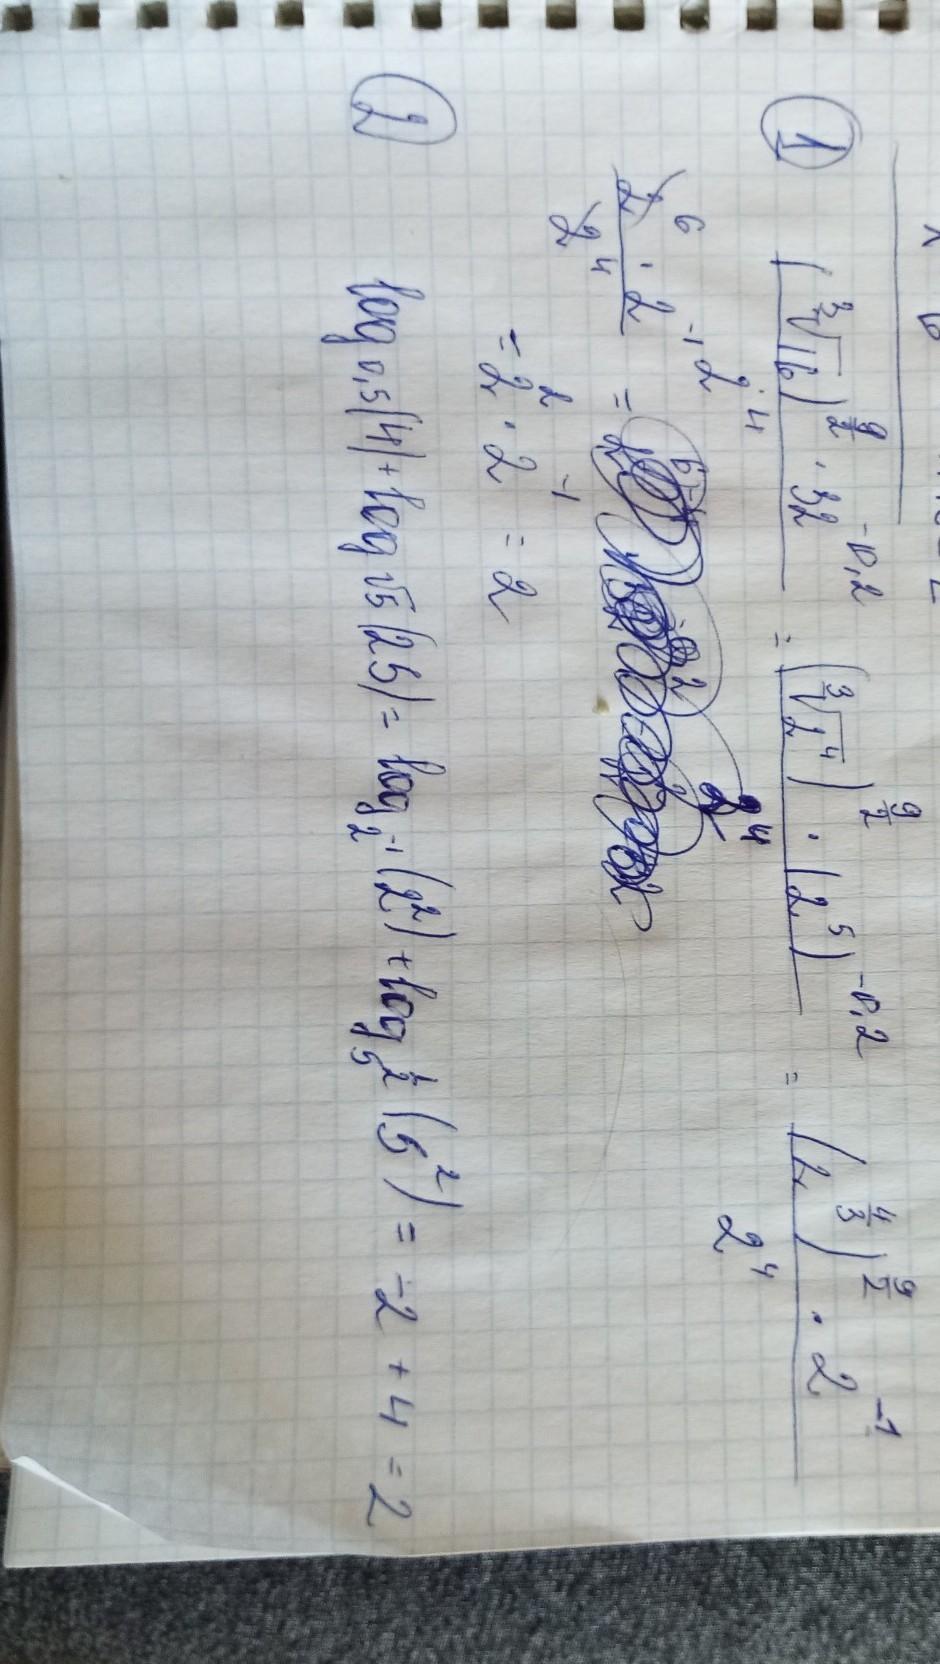 ① (∛16)^(9/2) · 32^(-0,2) / 2^4 = (∛2^4)^(9/2) · (2^5)^(-0,2) / 2^4 = (2^(4/3))^(9/2) · 2^(-1) / 2^4
2^6 · 2^(-1) / 2^4 =
= 2^2 · 2^(-1) = 2
② log_0,5(4) + log_√5(25) = log_2^(-1)(2^2) + log_5^(1/2)(5^2) = -2 + 4 = 2